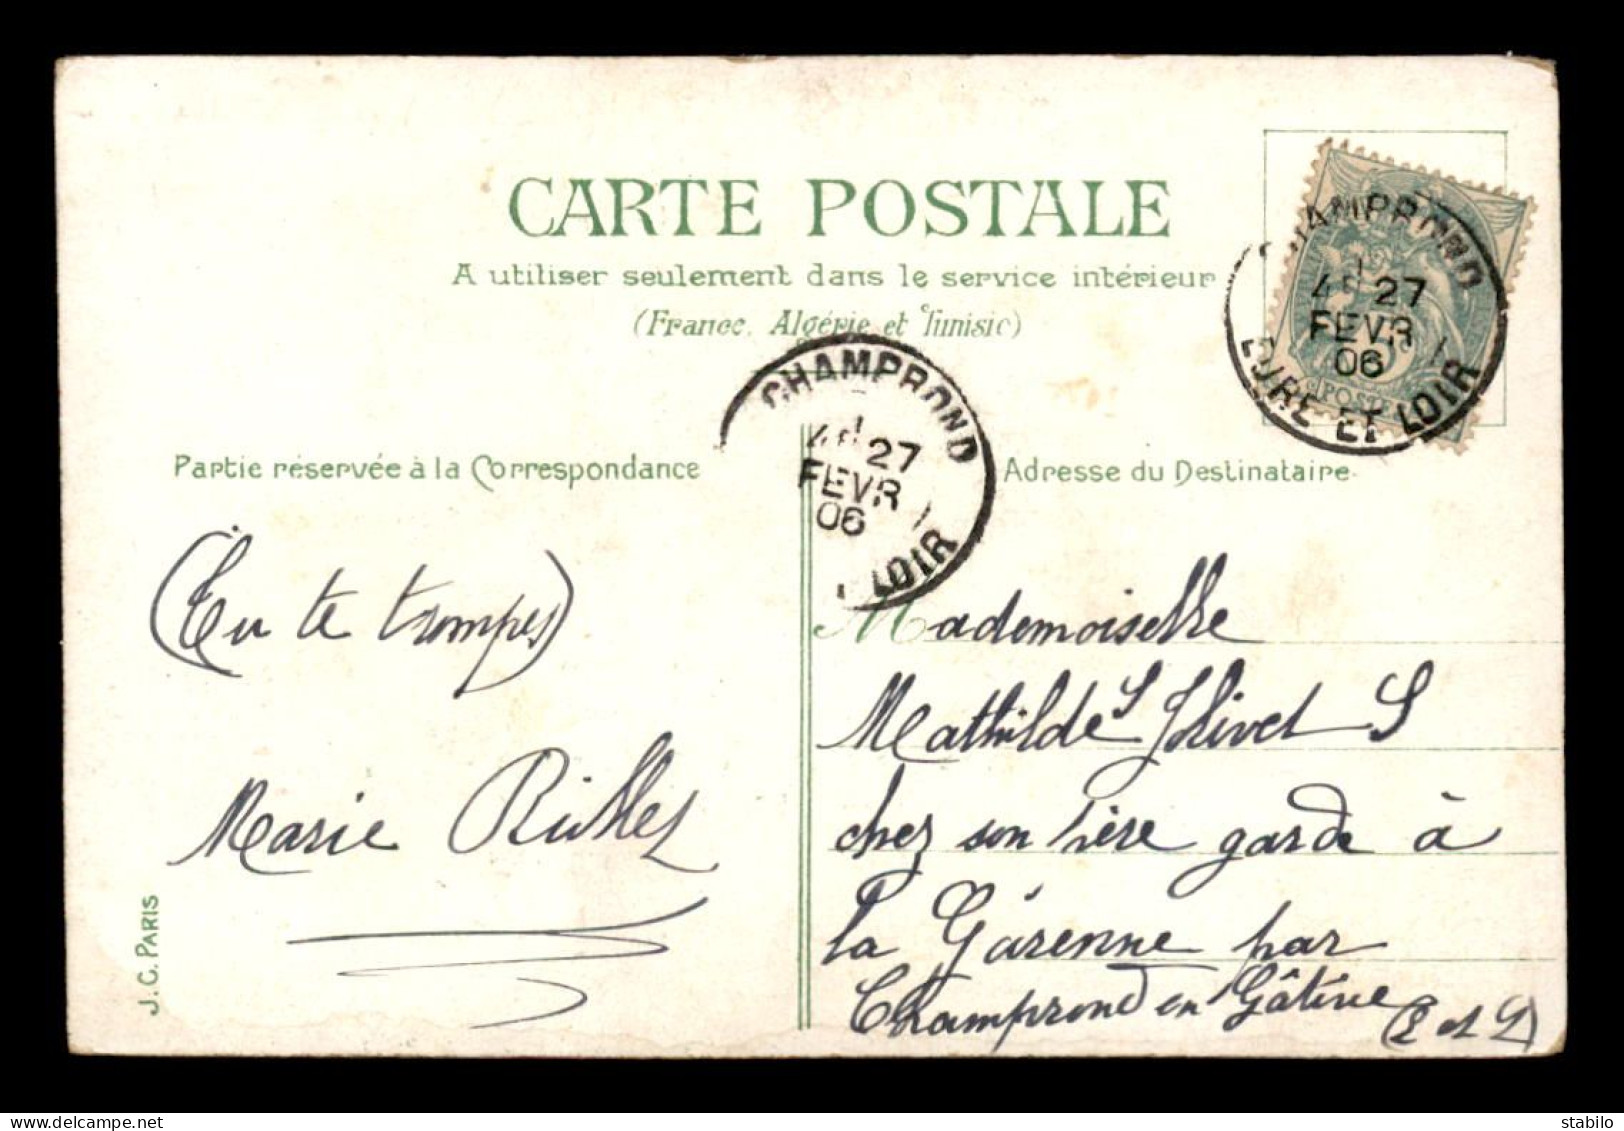 CARTE POSTALE
A utiliser seulement dans le service intérieur
(France, Algérie et Tunisie)
CHAMPROND
4E 27
FEVR
06
EURE ET LOIR
POSTE
CHAMPROND
4E 27
FEVR
06
LOIR
Partie réservée à la Correspondance
Adresse du Destinataire
(Tu te trompes)
Marie
J.C. PARIS
Mademoiselle
Mathilde
chez son Père garde à
la Garenne par
Champrond en Gâtine (E et L)
stabilo
www.delcampe.net